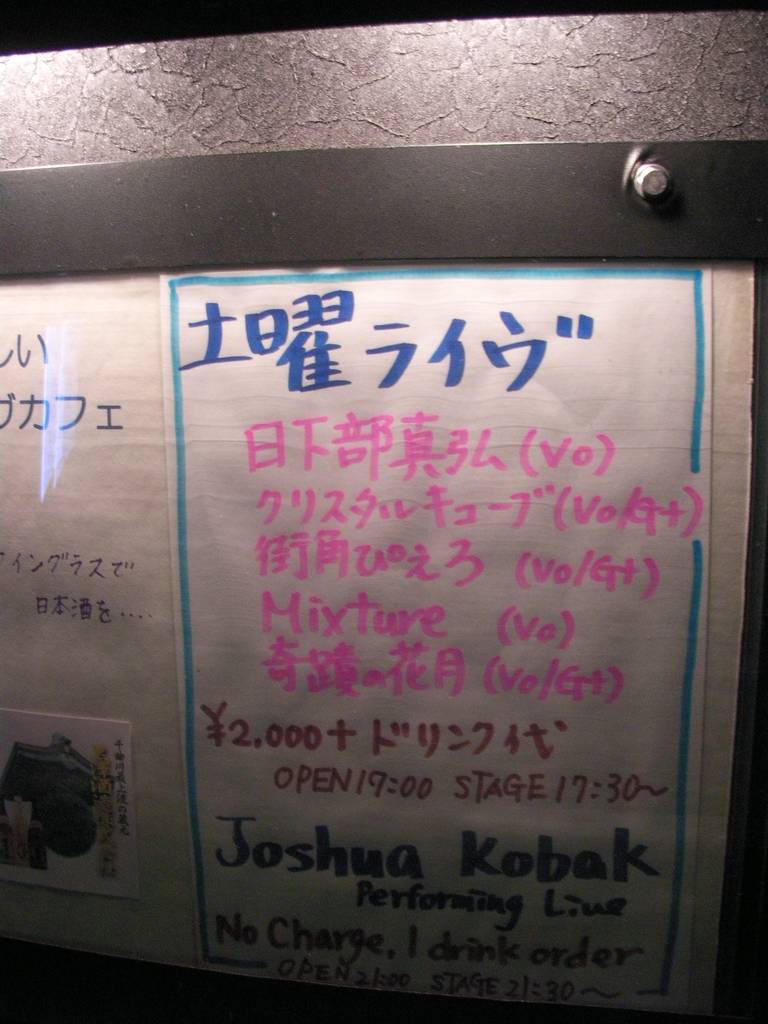 しい
ブカフェ
イングラスで
日本酒を....
千曲川最上流の蔵元
土曜ライヴ
日下部真弘 (Vo)
クリスタルキューブ (Vo/Gt)
街角ぴえろ (Vo/Gt)
Mixture (Vo)
奇蹟の花月 (Vo/Gt)
¥2.000+ドリンク代
OPEN17:00 STAGE17:30~
Joshua Kobak
Performing Live
No Charge. 1 drink order
OPEN21:00 STAGE21:30~